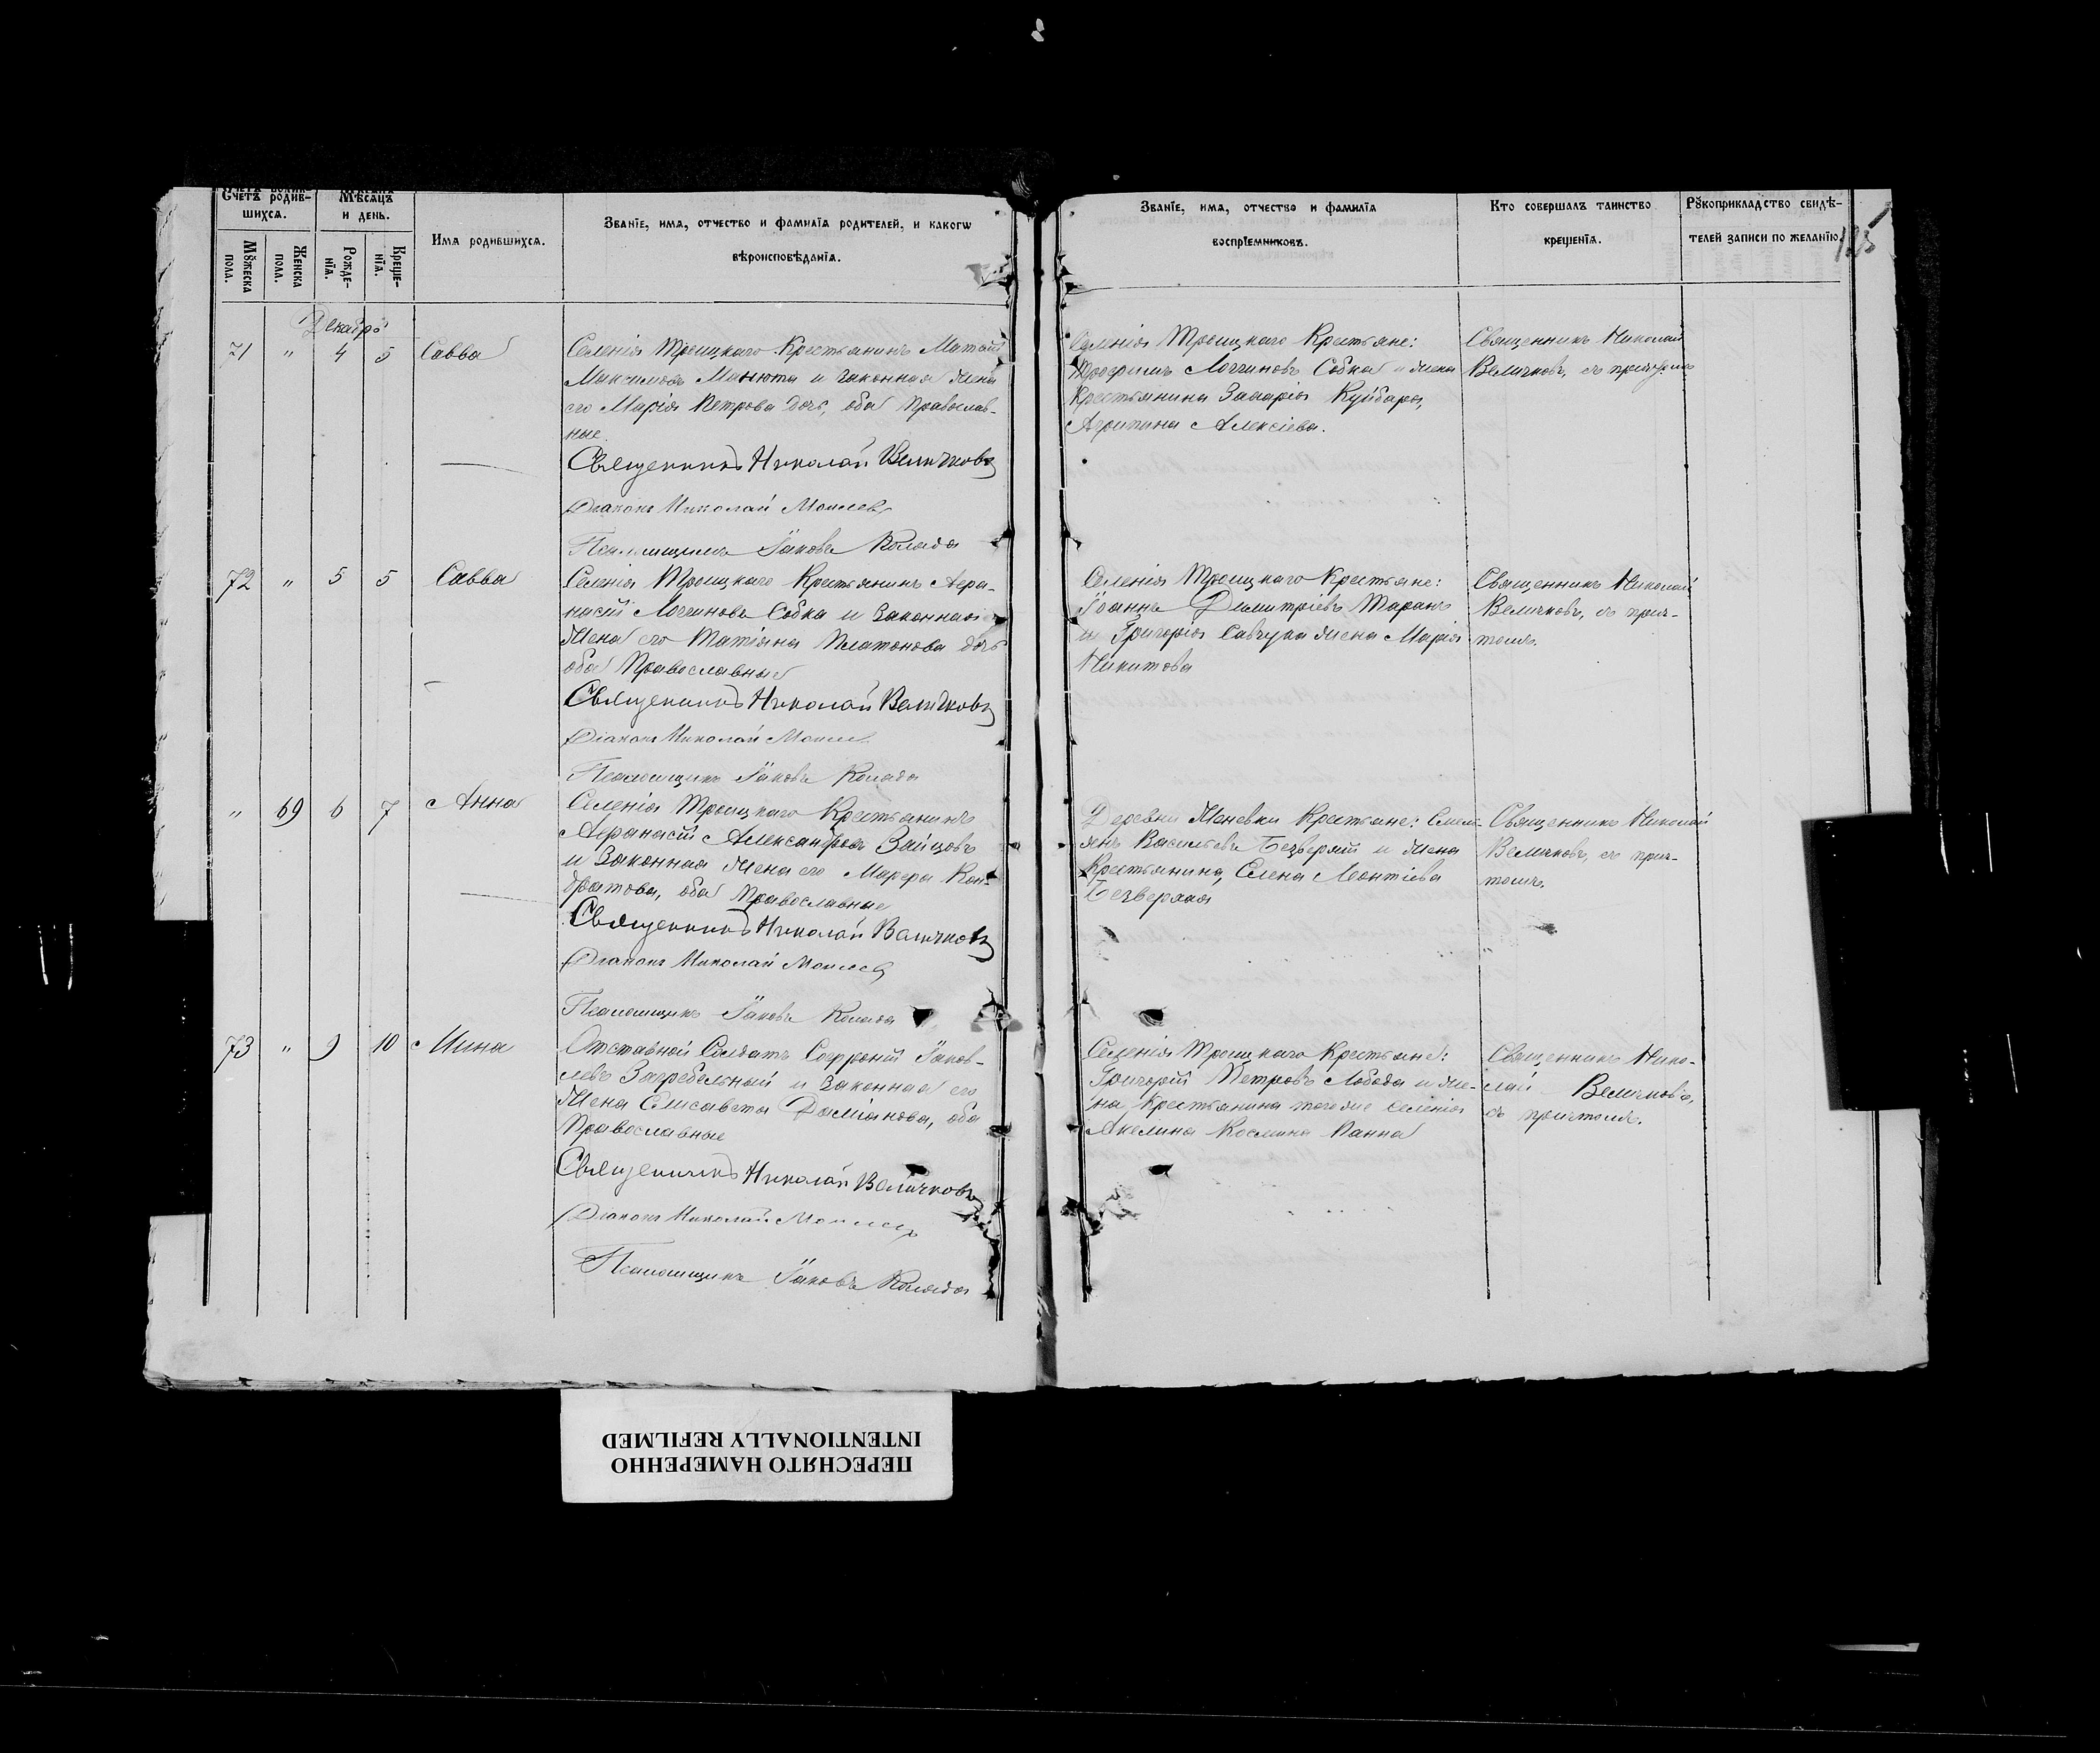 Счетъ родив-
шихсѧ.
Мѣсѧцъ
и день.
Имѧ родившихсѧ.
Званїе, имѧ, отчество и фамилїѧ родителей, и какогѡ
вѣроисповѣданїѧ.
Мꙋжеска
пола.
Женска
пола.
Рожде-
нїѧ.
Креще-
нїѧ.
Званїе, имѧ, отчество и фамилїѧ
воспрїемниковъ.
Кто совершалъ таинство
крещенїѧ.
Рꙋкоприкладство свидѣ-
телей записи по желанїю.
125
Декабрь
71 " 4 5 Савва
Селенія Троицкаго Крестьянинъ Матвѣй
Максимовъ Манюта и законная жена
его Марія Петрова дочь, оба православ-
ные.
Священникъ Николай Величковъ
Діаконъ Николай Моисеев
Псаломщикъ Іаковъ Коляда
Селенія Троицкаго Крестьяне:
Трофимъ Логгиновъ Собка и жена
Крестьянина Захарія
Агрипина Алексіева.
Священникъ Николай
Величковъ, съ причтомъ
72 " 5 5 Савва
Селенія Троицкаго Крестьянинъ Афа-
насій Логгиновъ Собка и законная
жена его Татіана Платонова дочь
оба Православные
Священникъ Николай Величковъ
Діаконъ Николай Моисеев
Псаломщикъ Іаковъ Коляда
Селенія Троицкаго Крестьяне:
Іоаннъ Димитріевъ Таранъ
и Григорія Савчука жена Марія
Никитова
Священникъ Николай
Величковъ, съ прич-
томъ.
" 69 6 7 Анна
Селенія Троицкаго Крестьянинъ
Афанасій Александровъ Зайцовъ
и законная жена его Марфа Кон-
дратова, оба Православные
Священникъ Николай Величковъ
Діаконъ Николай Моисеев
Псаломщикъ Іаковъ Коляда
Деревни Крестьяне: Емель-
янъ Васильевъ Безверхій и жена
Крестьянина, Елена Леонтіева
Безверхая
Священникъ Николай
Величковъ, съ прич-
томъ.
73 " 9 10 Мина
Отставной Солдатъ Софроній Іаков-
левъ Загребельный и законная его
жена Елисавета Даміанова, оба
Православные
Священникъ Николай Величковъ
Діаконъ Николай Моисеев
Псаломщикъ Іаковъ Коляда
Селенія Троицкаго Крестьяне:
Григорій Петровъ Лобода и же-
на Крестьянина тогоже селенія
Акелина Космина Панна
Священникъ Нико-
лай Величковъ,
съ причтомъ.
ПЕРЕСНЯТО НАМЕРЕННО
INTENTIONALLY REFILMED